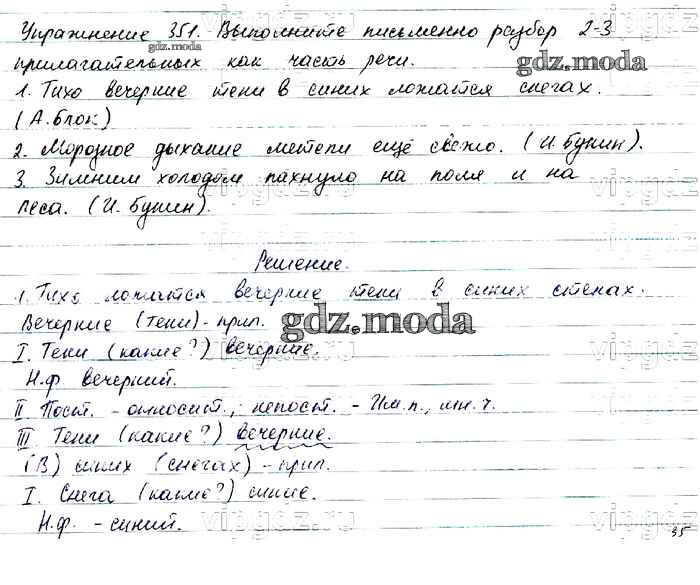 Упражнение 351. Выполните письменно разбор 2-3
прилагательных как часть речи.
1. Тихо вечерние тени в синих ложатся снегах.
(А.Блок)
2. Морозное дыхание метели ещё свежо. (И. Бунин).
3. Зимним холодом пахнуло на поля и на
леса. (И. Бунин).
Решение.
1. Тихо ложатся вечерние тени в синих стенах.
Вечерние (тени) - прил.
I. Тени (какие?) вечерние.
Н.ф вечерний.
II Пост. - относит.; непост. - Им.п., мн.ч.
III Тени (какие?) вечерние.
(В) синих (снегах) - прил.
I. Снега (какие?) синие.
Н.ф. - синий.
35
gdz.moda
gdz.moda
gdz.moda
vipgdz.ru
vipgdz.ru
vipgdz.ru
vipgdz.ru
vipgdz.ru
vipgdz.ru